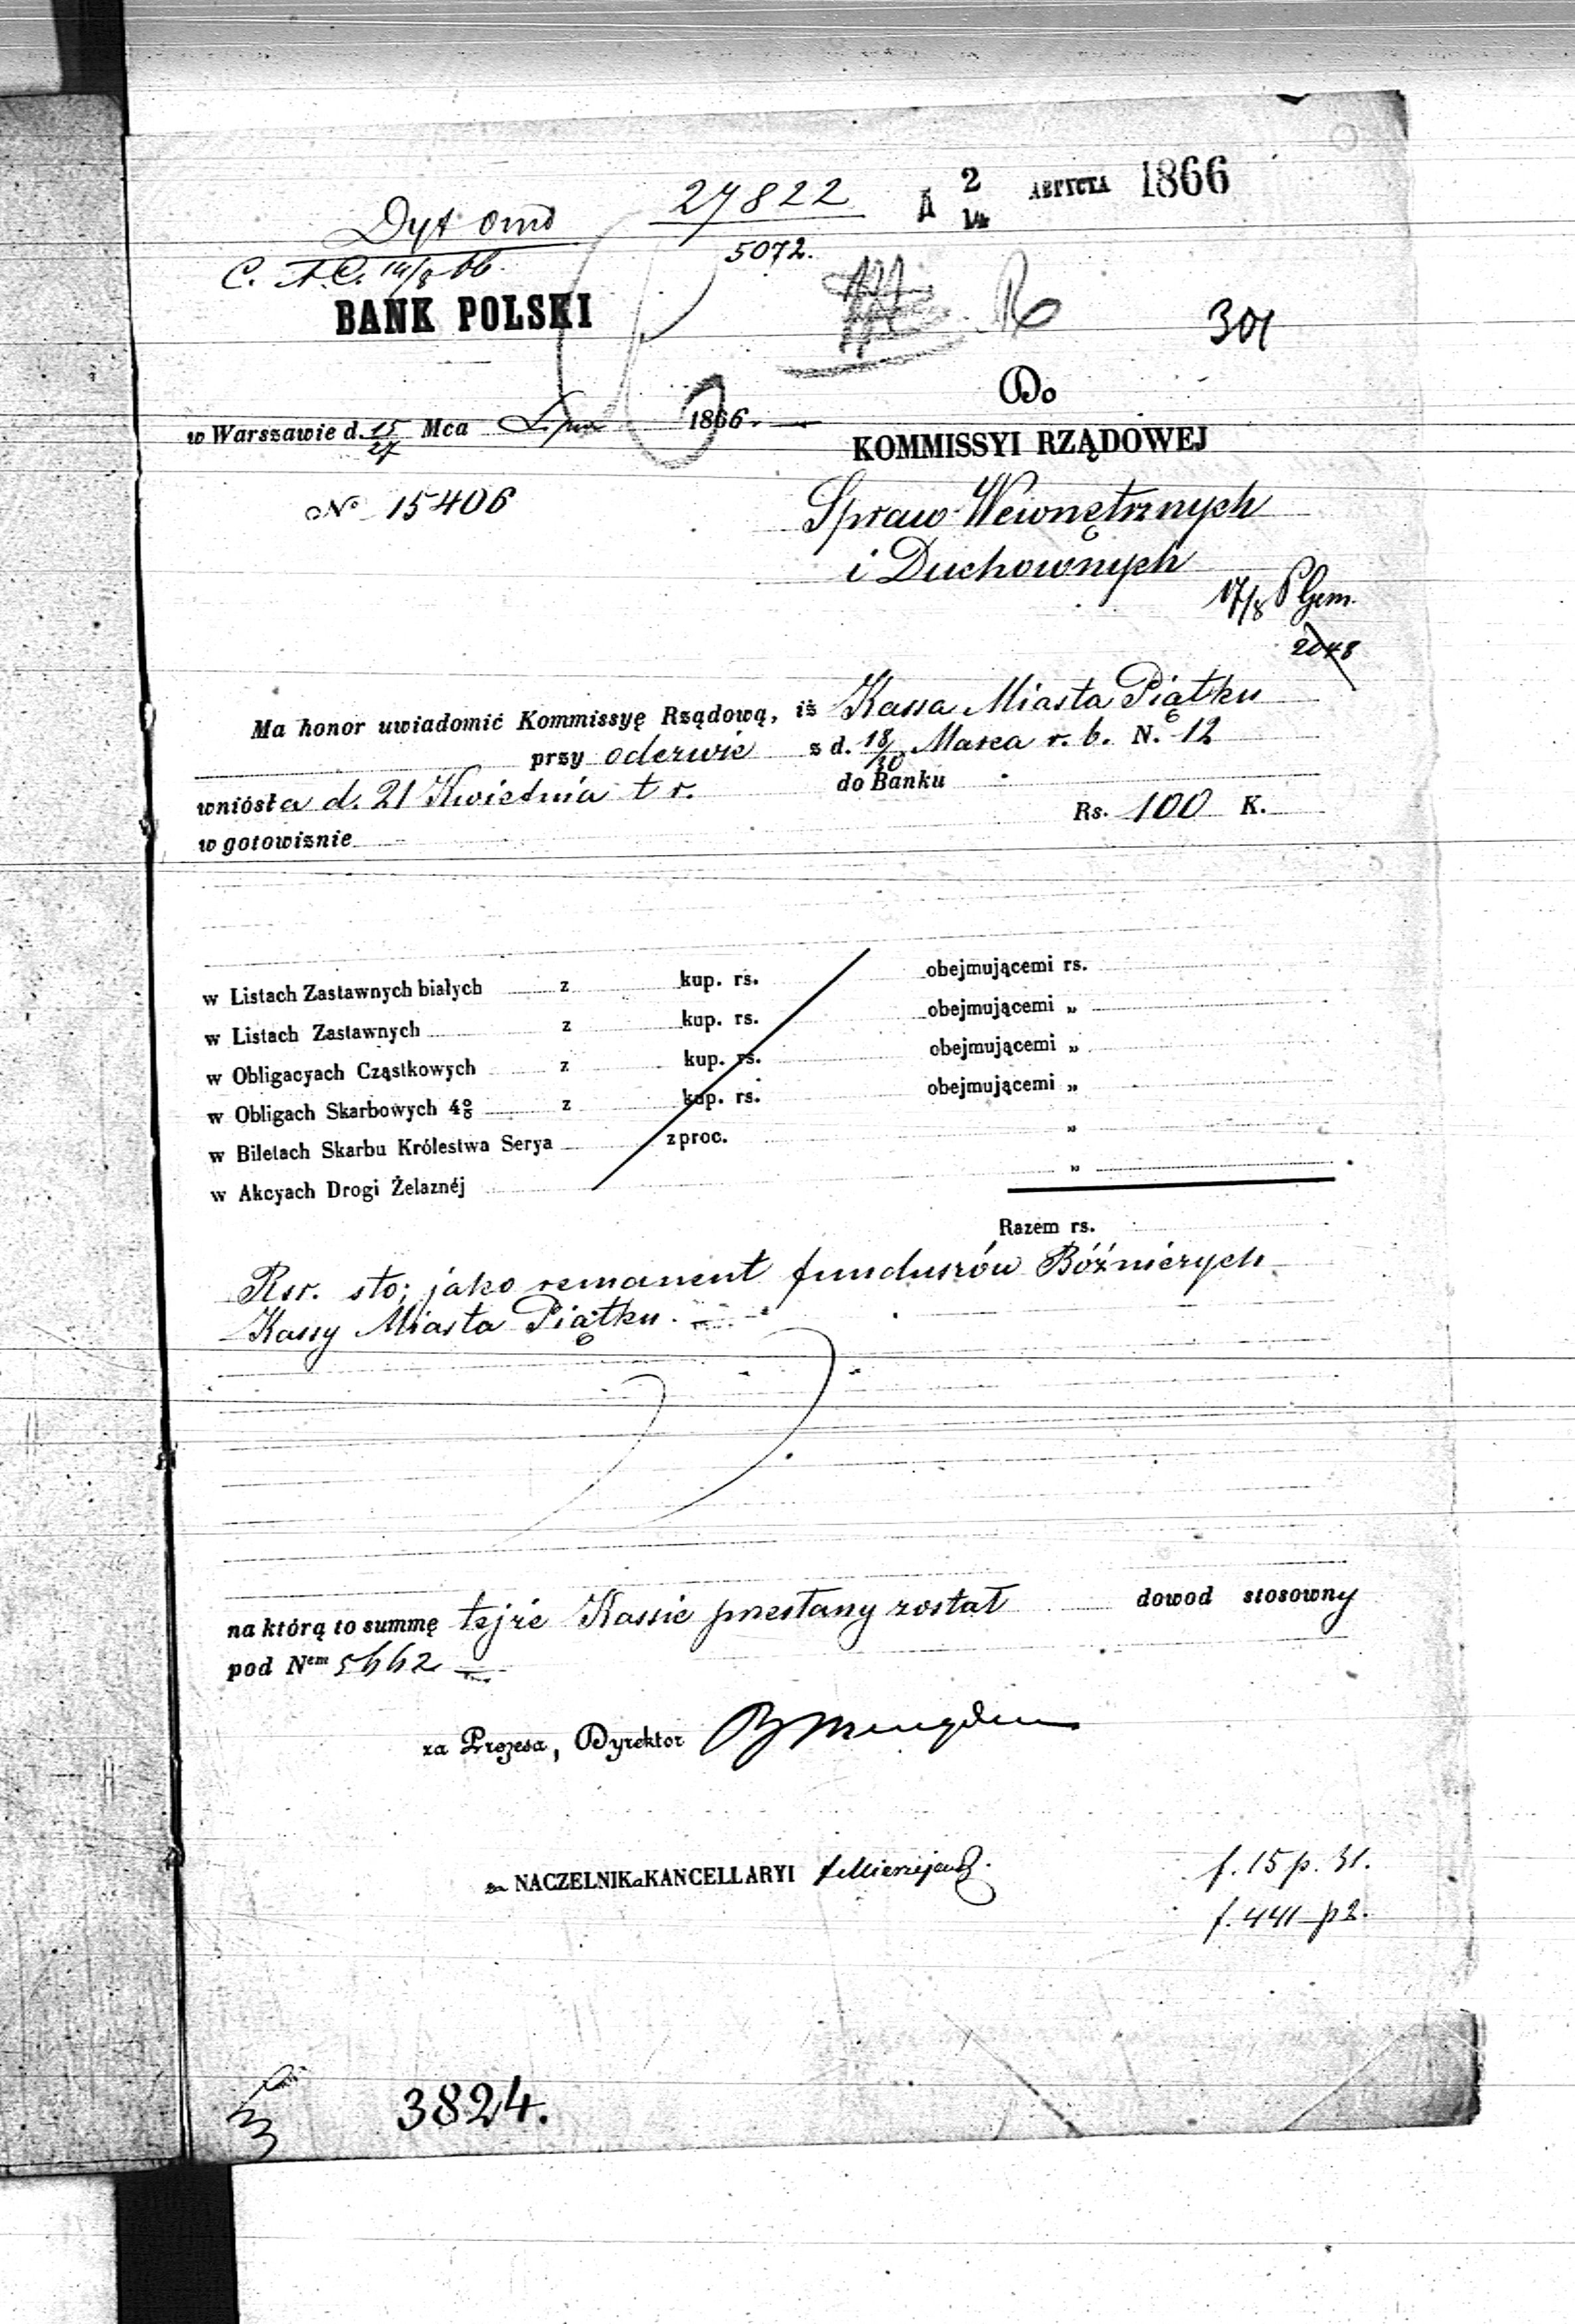 27822
5072.
2
14
АВГУСТА 1866
Dyt
C. A. C. 14/8 66.
BANK POLSKI
301
Do
w Warszawie d. 15/27 Mca Lipca 1866.
KOMMISSYI RZĄDOWEJ
No 15406
Spraw Wewnętrznych
i Duchownych
17/8
2048
Ma honor uwiadomić Kommissyę Rządową, iż Kassa Miasta Piątku
przy odezwie z d. 18/30 Marca r. b. N. 12
wniósła d. 21 Kwietnia t r. do Banku
w gotowiznie Rs. 100 K.
w Listach Zastawnych białych z kup. rs. obejmującemi rs.
w Listach Zastawnych z kup. rs. obejmującemi „
w Obligacyach Cząstkowych z kup. rs. obejmującemi „
w Obligach Skarbowych 4% z kup. rs. obejmującemi „
w Biletach Skarbu Królestwa Serya z proc. „
w Akcyach Drogi Żelaznéj „
Razem rs.
Rsr. sto; jako remanent funduszów Bóźniczych
Kassy Miasta Piątku.
na którą to summę tejże Kassie przesłany został dowod stosowny
pod Nem 5662
za Prezesa, Dyrektor
za NACZELNIKa KANCELLARYI
f. 15 p. 31.
f. 441 p 2.
3824.